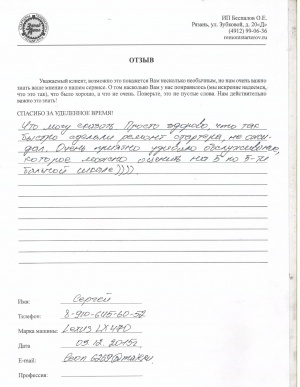 ИП Беспалов О.Е.
Рязань, ул. Зубковой, д. 20«Д»
(4912) 99-06-36
remontstarterov.ru
ОТЗЫВ
Уважаемый клиент, возможно это покажется Вам несколько необычным, но нам очень важно
знать ваше мнение о нашем сервисе. О том насколько Вам у нас понравилось (мы искренне надеемся,
что это так), что было хорошо, а что не очень. Поверьте, это не пустые слова. Нам действительно
важно это знать!
СПАСИБО ЗА УДЕЛЕННОЕ ВРЕМЯ!
Что могу сказать Просто здорово, что так
быстро сделали ремонт стартера, не ожи-
дал. Очень приятно удивило обслуживание,
которое можно оценить на 5 по 5-ти
бальной шкале))))
Имя: Сергей
Телефон: 8-910-645-60-52
Марка машины: Lexus LX470
Дата 09.12.2015г
E-mail:
Профессия: